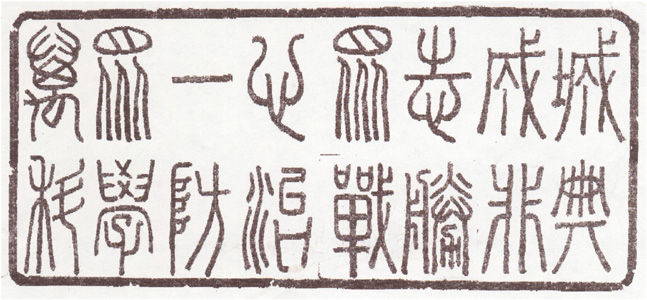 萬眾一心眾志成城
科學防治戰勝非典